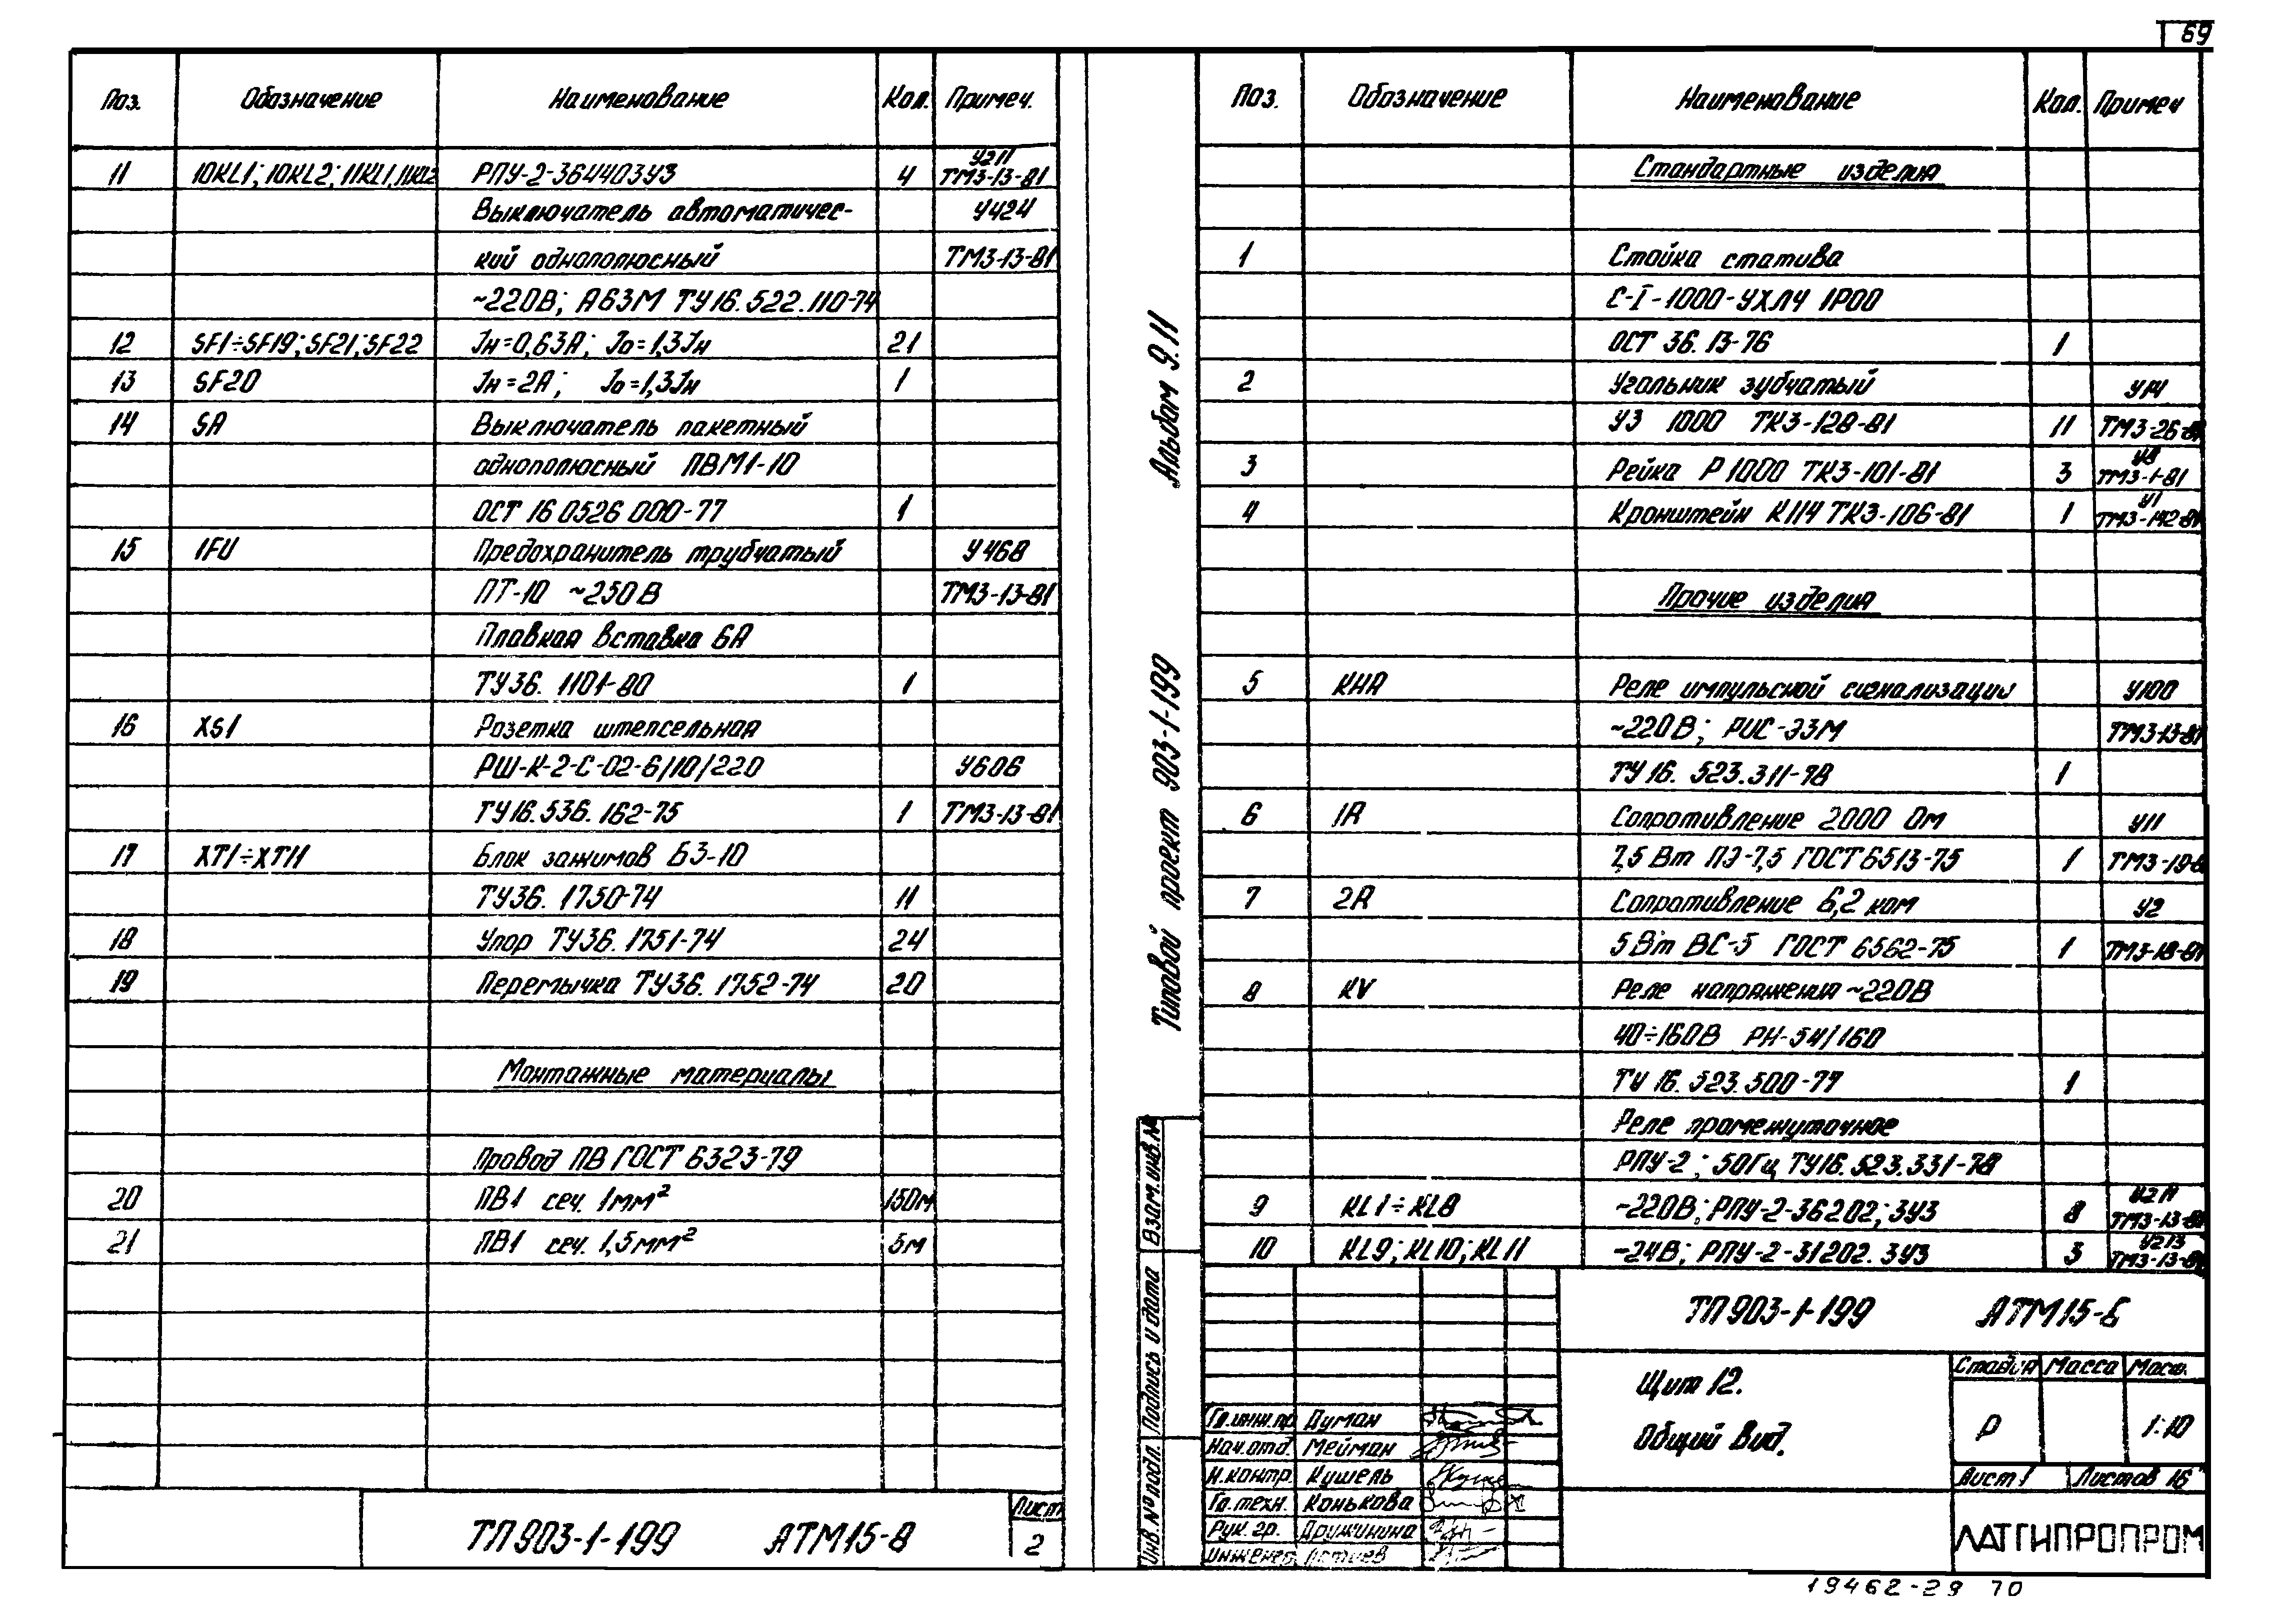 69
Поз. Обозначение Наименование Кол. Примеч.
У211
11 10KL1; 10KL2; 11KL1, 11KL2 РПУ-2-364403У3 4 ТМ3-13-81
Выключатель автоматичес- У424
кий однополюсный ТМ3-13-81
~220В; А63М ТУ16.522.110-74
12 SF1÷SF19; SF21; SF22 Jн=0,63А; Jо=1,3Jн 21
13 SF20 Jн=2А; Jо=1,3Jн 1
14 SA Выключатель пакетный
однополюсный ПВМ1-10
ОСТ 16 0526 000-77 1
15 1FU Предохранитель трубчатый У468
ПТ-10 ~250В ТМ3-13-81
Плавкая вставка 6А
ТУ36. 1101-80 1
16 XS1 Розетка штепсельная
РШ-К-2-С-02-6/10/220 У606
ТУ16.536.162-75 1 ТМ3-13-81
17 XT1÷XT11 Блок зажимов БЗ-10
ТУ36. 1750-74 11
18 Упор ТУ36. 1751-74 24
19 Перемычка ТУ36. 1752-74 20
Монтажные материалы
Провод ПВ ГОСТ 6323-79
20 ПВ1 сеч. 1мм² 150м
21 ПВ1 сеч. 1,5мм² 5м
ТП903-1-199 АТМ15-8
Лист
2
Альбом 9.11
Типовой проект 903-1-199
Взам.инв.№
Подпись и дата
Инв.№ подл.
Поз. Обозначение Наименование Кол. Примеч
Стандартные изделия
1 Стойка статива
С-I-1000-УХЛ4 IP00
ОСТ 36.13-76 1
2 Угольник зубчатый У14
УЗ 1000 ТК3-128-81 11 ТМ3-26-81
У8
3 Рейка Р1000 ТК3-101-81 3 ТМ3-1-81
У1
4 Кронштейн К114 ТК3-106-81 1 ТМ3-142-81
Прочие изделия
5 КНА Реле импульсной сигнализации У100
~220В; РИС-Э3М ТМ3-13-81
ТУ16. 523.311-78 1
6 1R Сопротивление 2000 Ом У11
7,5 Вт ПЭ-7,5 ГОСТ 6513-75 1 ТМ3-19-8
7 2R Сопротивление 6,2 ком У2
5 Вт ВС-5 ГОСТ 6562-75 1 ТМ3-18-81
8 KV Реле напряжения ~220В
40÷160В РН-54/160
ТУ 16.523.500-77 1
Реле промежуточное
РПУ-2; 50Гц ТУ16.523.331-78
9 KL1÷KL8 ~220В; РПУ-2-36202; 3У3 8 ТМ3-13-81
У213
10 KL9; KL10; KL11 -24В; РПУ-2-31202.3У3 3 ТМ3-13-81
ТП903-1-199 АТМ15-
Щит 12.
Общий вид.
Стадия Масса Масш.
Р 1:10
Лист 1 Листов
Гл.инж.пр. Думан
Нач.отд. Мейман
Н.контр. Кушель
Гл.техн. Конькова
Рук.гр. Дружинина
Инженер
ЛАТГИПРОПРОМ
19462-29 70